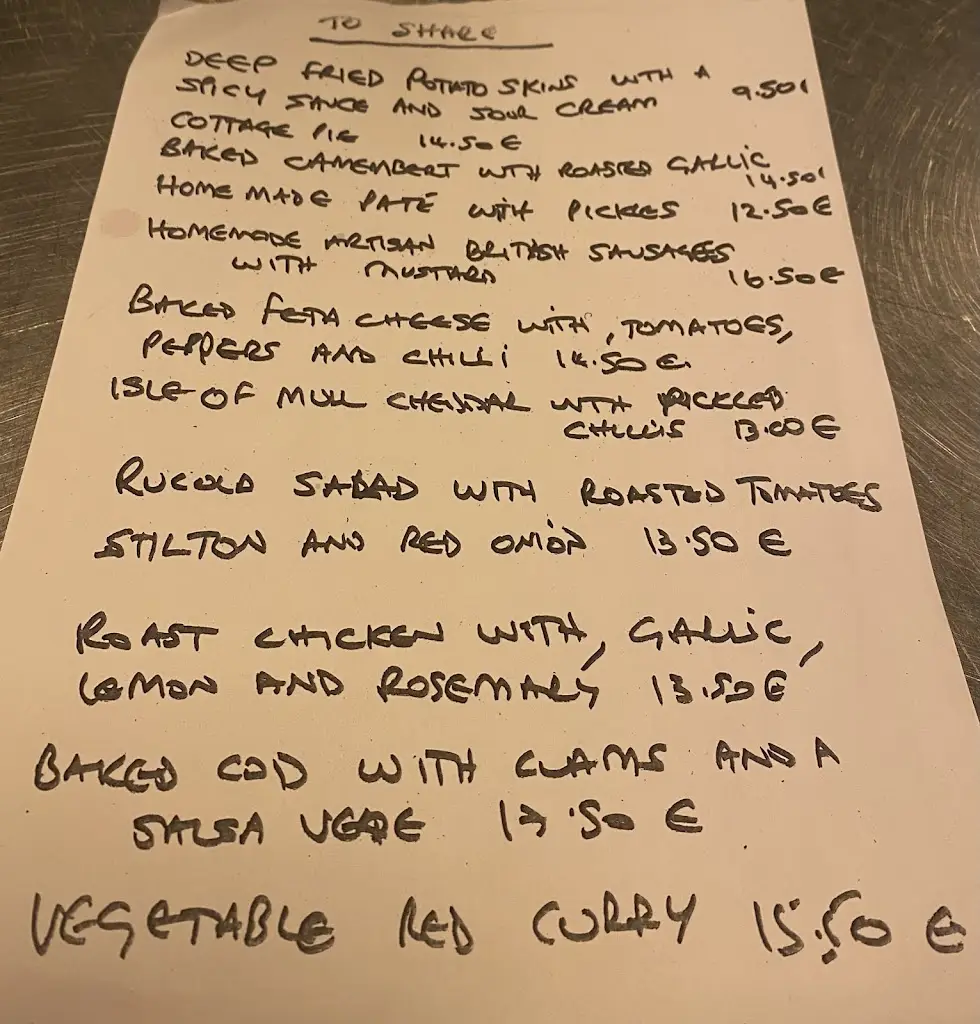 TO SHARE
DEEP FRIED POTATO SKINS WITH A
SPICY SAUCE AND SOUR CREAM 9.50€
COTTAGE PIE 14.50€
BAKED CAMEMBERT WITH ROASTED GALLIC
14.50€
HOME MADE PATÉ WITH PICKLES 12.50€
HOMEMADE ARTISAN BRITISH SAUSAGES
WITH MUSTARD 16.50€
BAKED FETA CHEESE WITH, TOMATOES,
PEPPERS AND CHILLI 14.50€
ISLE OF MULL CHEDDAR WITH PICKLED
CHILLIS 13.00€
RUCOLA SALAD WITH ROASTED TOMATOES
STILTON AND RED ONION 13.50 €
ROAST CHICKEN WITH, GALLIC,
LEMON AND ROSEMARY 13.50€
BAKED COD WITH CLAMS AND A
SALSA VERDE €
VEGETABLE RED CURRY 15.50 €